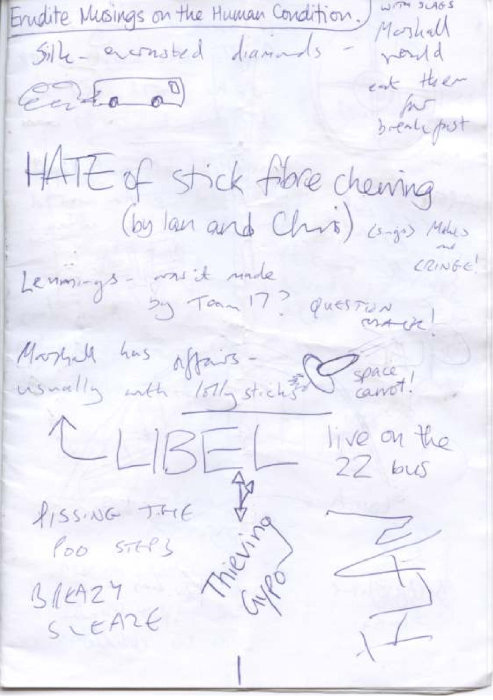 Erudite Musings on the Human Condition.
WITH SLAGS
Marshall
would
eat them
for
breakfast
Silk - encrusted diamonds -
HATE of stick fibre chewing
(by Ian and Chris)
(sings) Makes
me
CRINGE!
Lemmings - was it made
by Team 17?
QUESTION
MARK!
Marshall has affairs -
usually with lolly sticks
space
carrot!
LIBEL
live on the
22 bus
PISSING THE
POO STEPS
Thieving
Gypo
BREAZY
SLEAZE